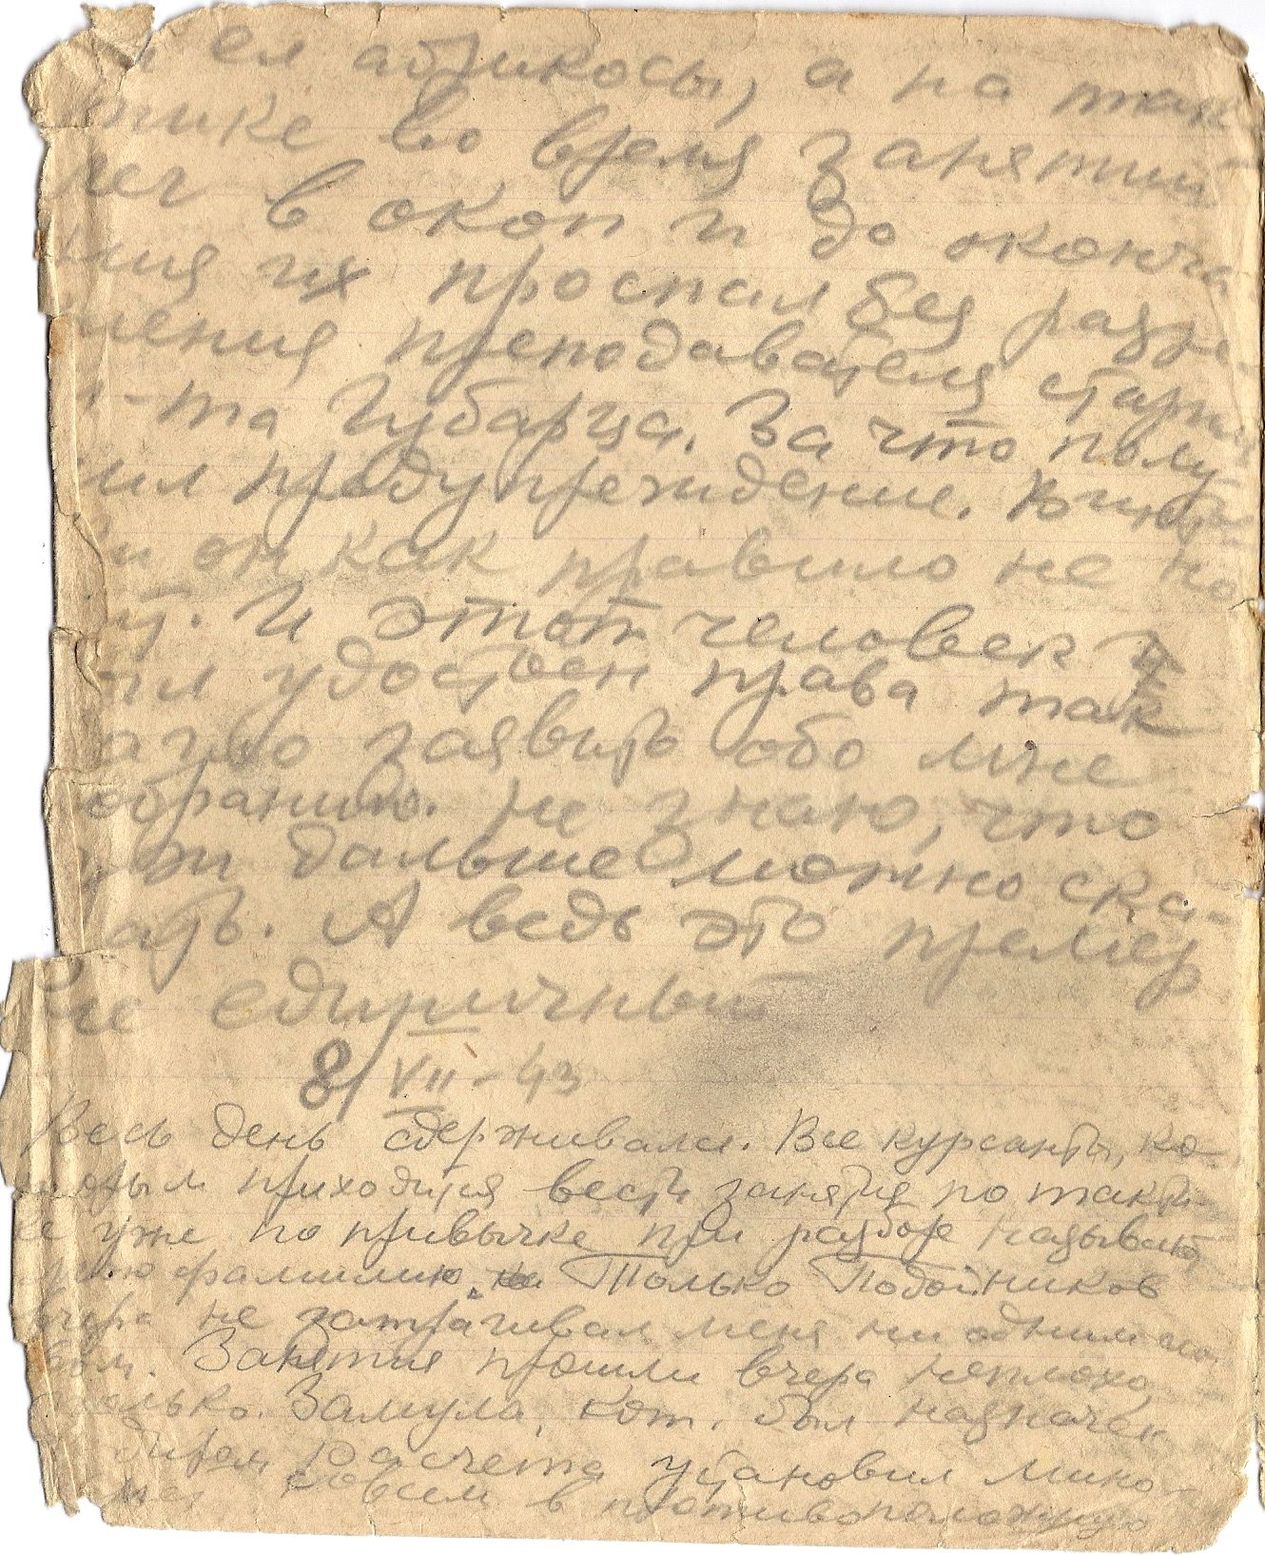 ел абрикосы, а на так
тике во время занятий
лег в окоп и до оконча
ния их проспал без разре
шения преподавателя старш
л-та Губарца. За что полу
чил предупреждение.
он как правило не но
ит. И этот человек
был удостоен права так
нагло заявить обо мне
собранию. Не знаю, что
уж дальше можно ска-
зать. А ведь это пример
не единичный
8/VII-43
Весь день сдерживался. Все курсанты, ко-
торым приходится вести занятия по такти-
ке уже по привычке при разборе называют
мою фамилию. Только Подойников
вчера не затрагивал меня ни одним сло-
вом. Занятия прошли вчера неплохо,
только Замула, кот. был назначен
расчета установил мино-
мет совсем в противоположную